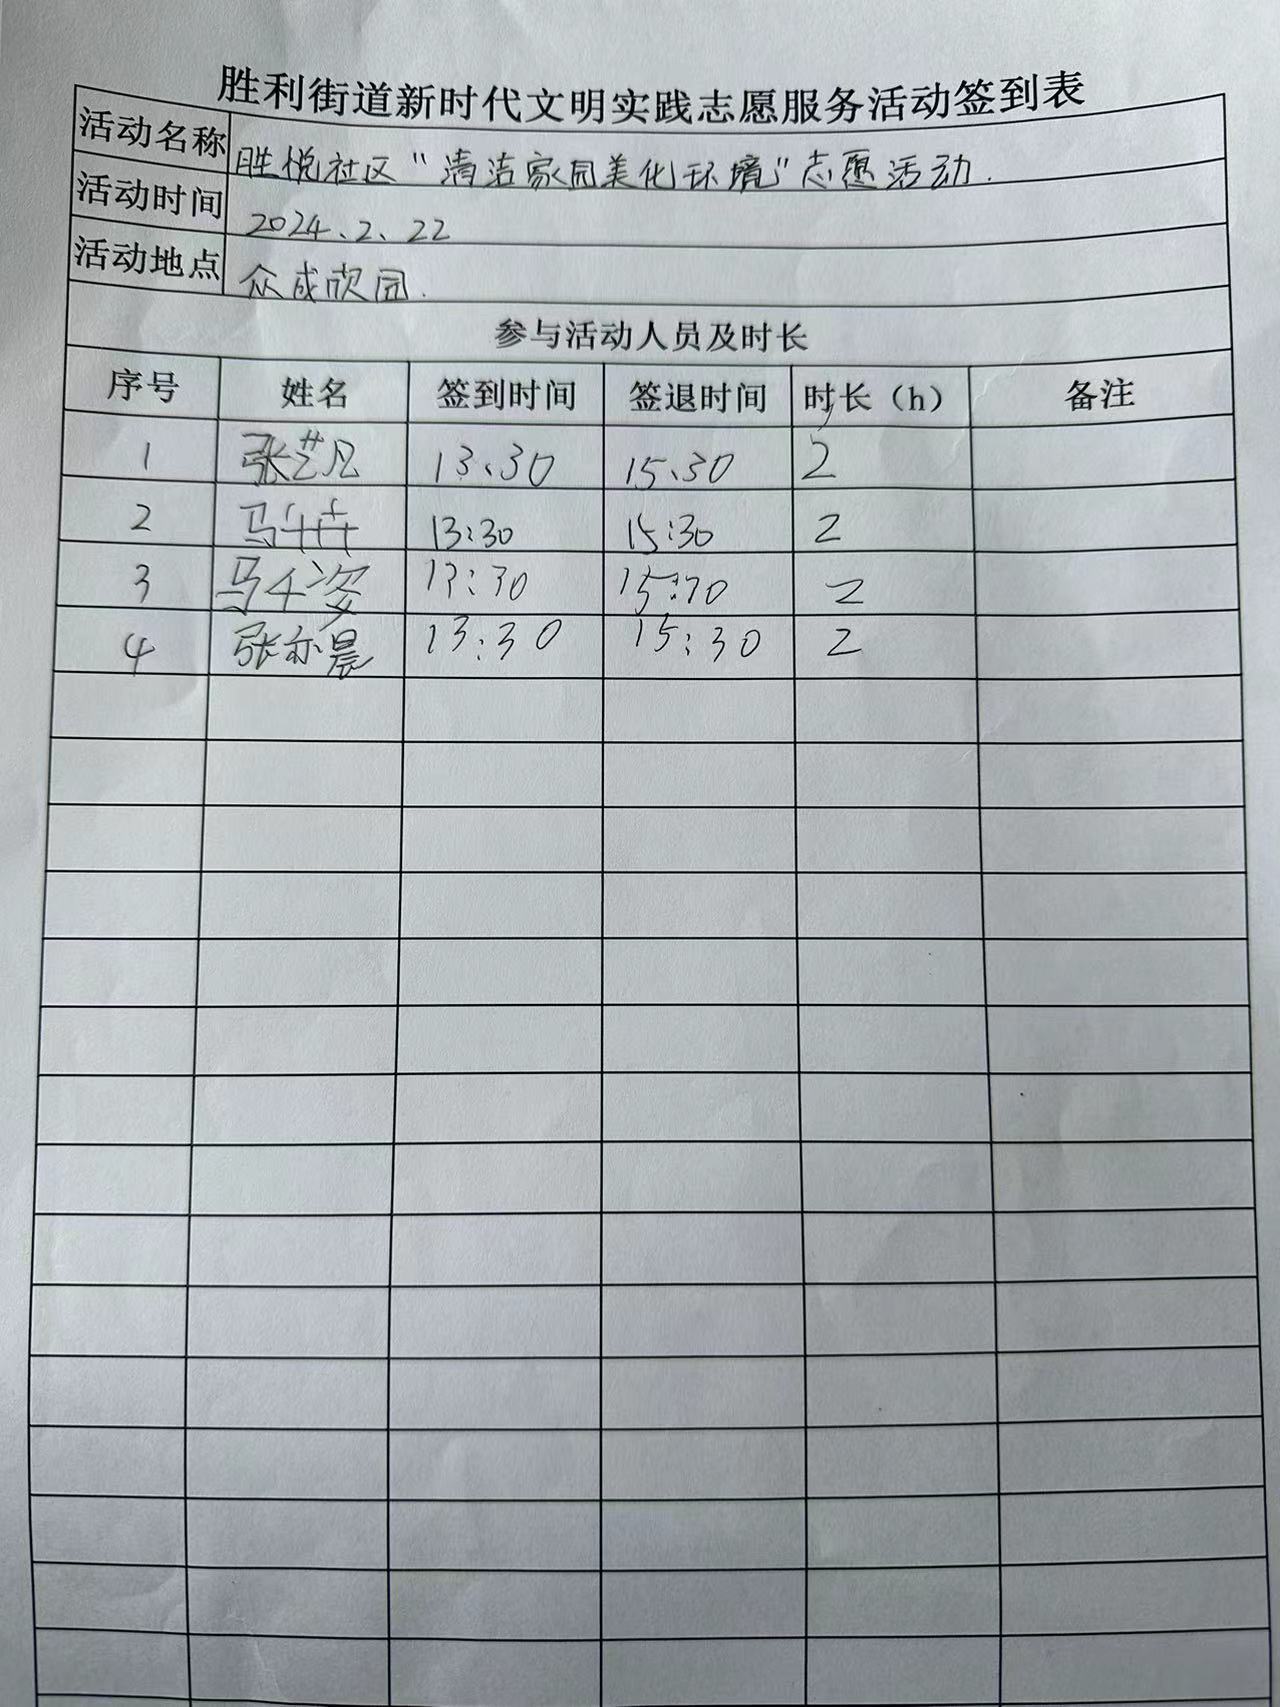 胜利街道新时代文明实践志愿服务活动签到表
活动名称 胜悦社区“清洁家园美化环境”志愿活动.
活动时间 2024.2.22
活动地点 众成欣园.
参与活动人员及时长
序号 姓名 签到时间 签退时间 时长（h） 备注
1 张艺凡 13.30 15.30 2
2 马 13:30 15:30 2
3 马千姿 13:30 15:30 2
4 张亦晨 13:30 15:30 2